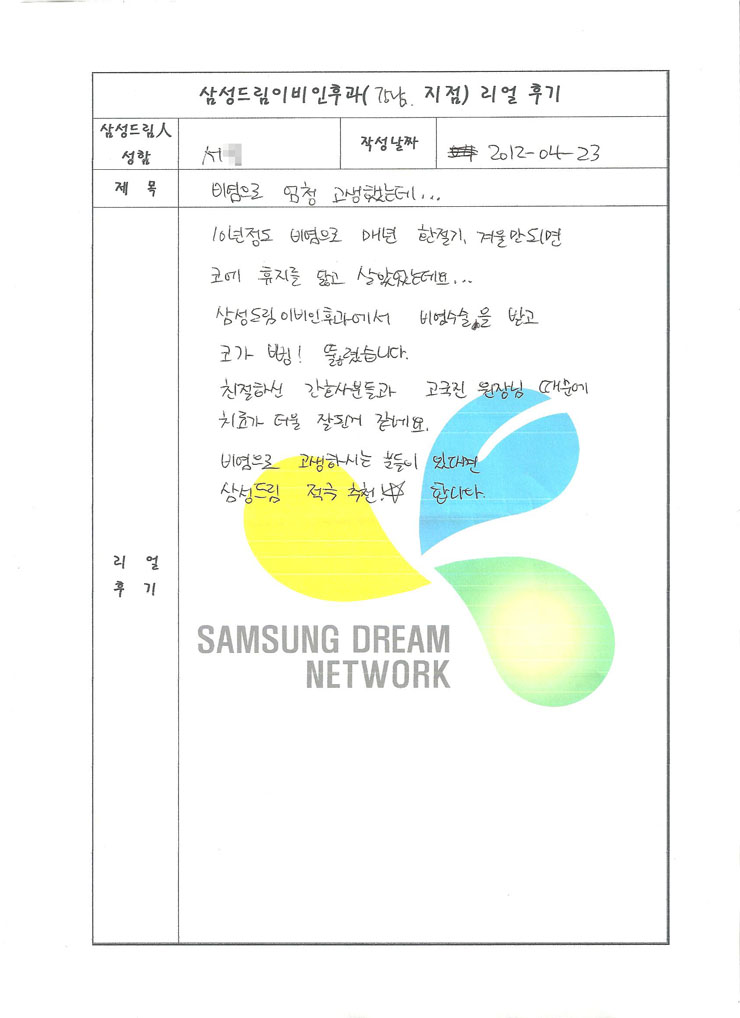 삼성드림이비인후과(강남. 지점) 리얼 후기
삼성드림人
성함
서
작성날짜
2012-04-23
제 목
비염으로 엄청 고생했는데...
10년정도 비염으로 매년 환절기, 겨울만되면
코에 휴지를 달고 살았었는데요...
삼성드림이비인후과에서 비염수술을 받고
코가 뻥! 뚫렸습니다.
친절하신 간호사분들과 고국진 원장님 때문에
치료가 더욱 잘된거 같네요.
비염으로 고생하시는 분들이 있다면
삼성드림 적극 추천!☆ 합니다.
리 얼
후 기
SAMSUNG DREAM
NETWORK